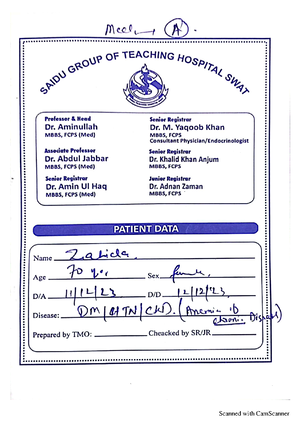 Med A
SAIDU GROUP OF TEACHING HOSPITAL SWAT
Professor & Head
Dr. Aminullah
MBBS, FCPS (Med)
Associate Professor
Dr. Abdul Jabbar
MBBS, FCPS (Med)
Senior Registrar
Dr. Amin Ul Haq
MBBS, FCPS (Med)
Senior Registrar
Dr. M. Yaqoob Khan
MBBS, FCPS
Consultant Physician/Endocrinologist
Senior Registrar
Dr. Khalid Khan Anjum
MBBS, FCPS
Junior Registrar
Dr. Adnan Zaman
MBBS, FCPS
PATIENT DATA
Name Zahida
Age 70 yr. Sex female
D/A 11/12/23 D/D 12/12/23
Disease: DM/HTN/CKD. (Anemia
Chronic Disease)
Prepared by TMO: Cheacked by SR/JR
Scanned with CamScanner